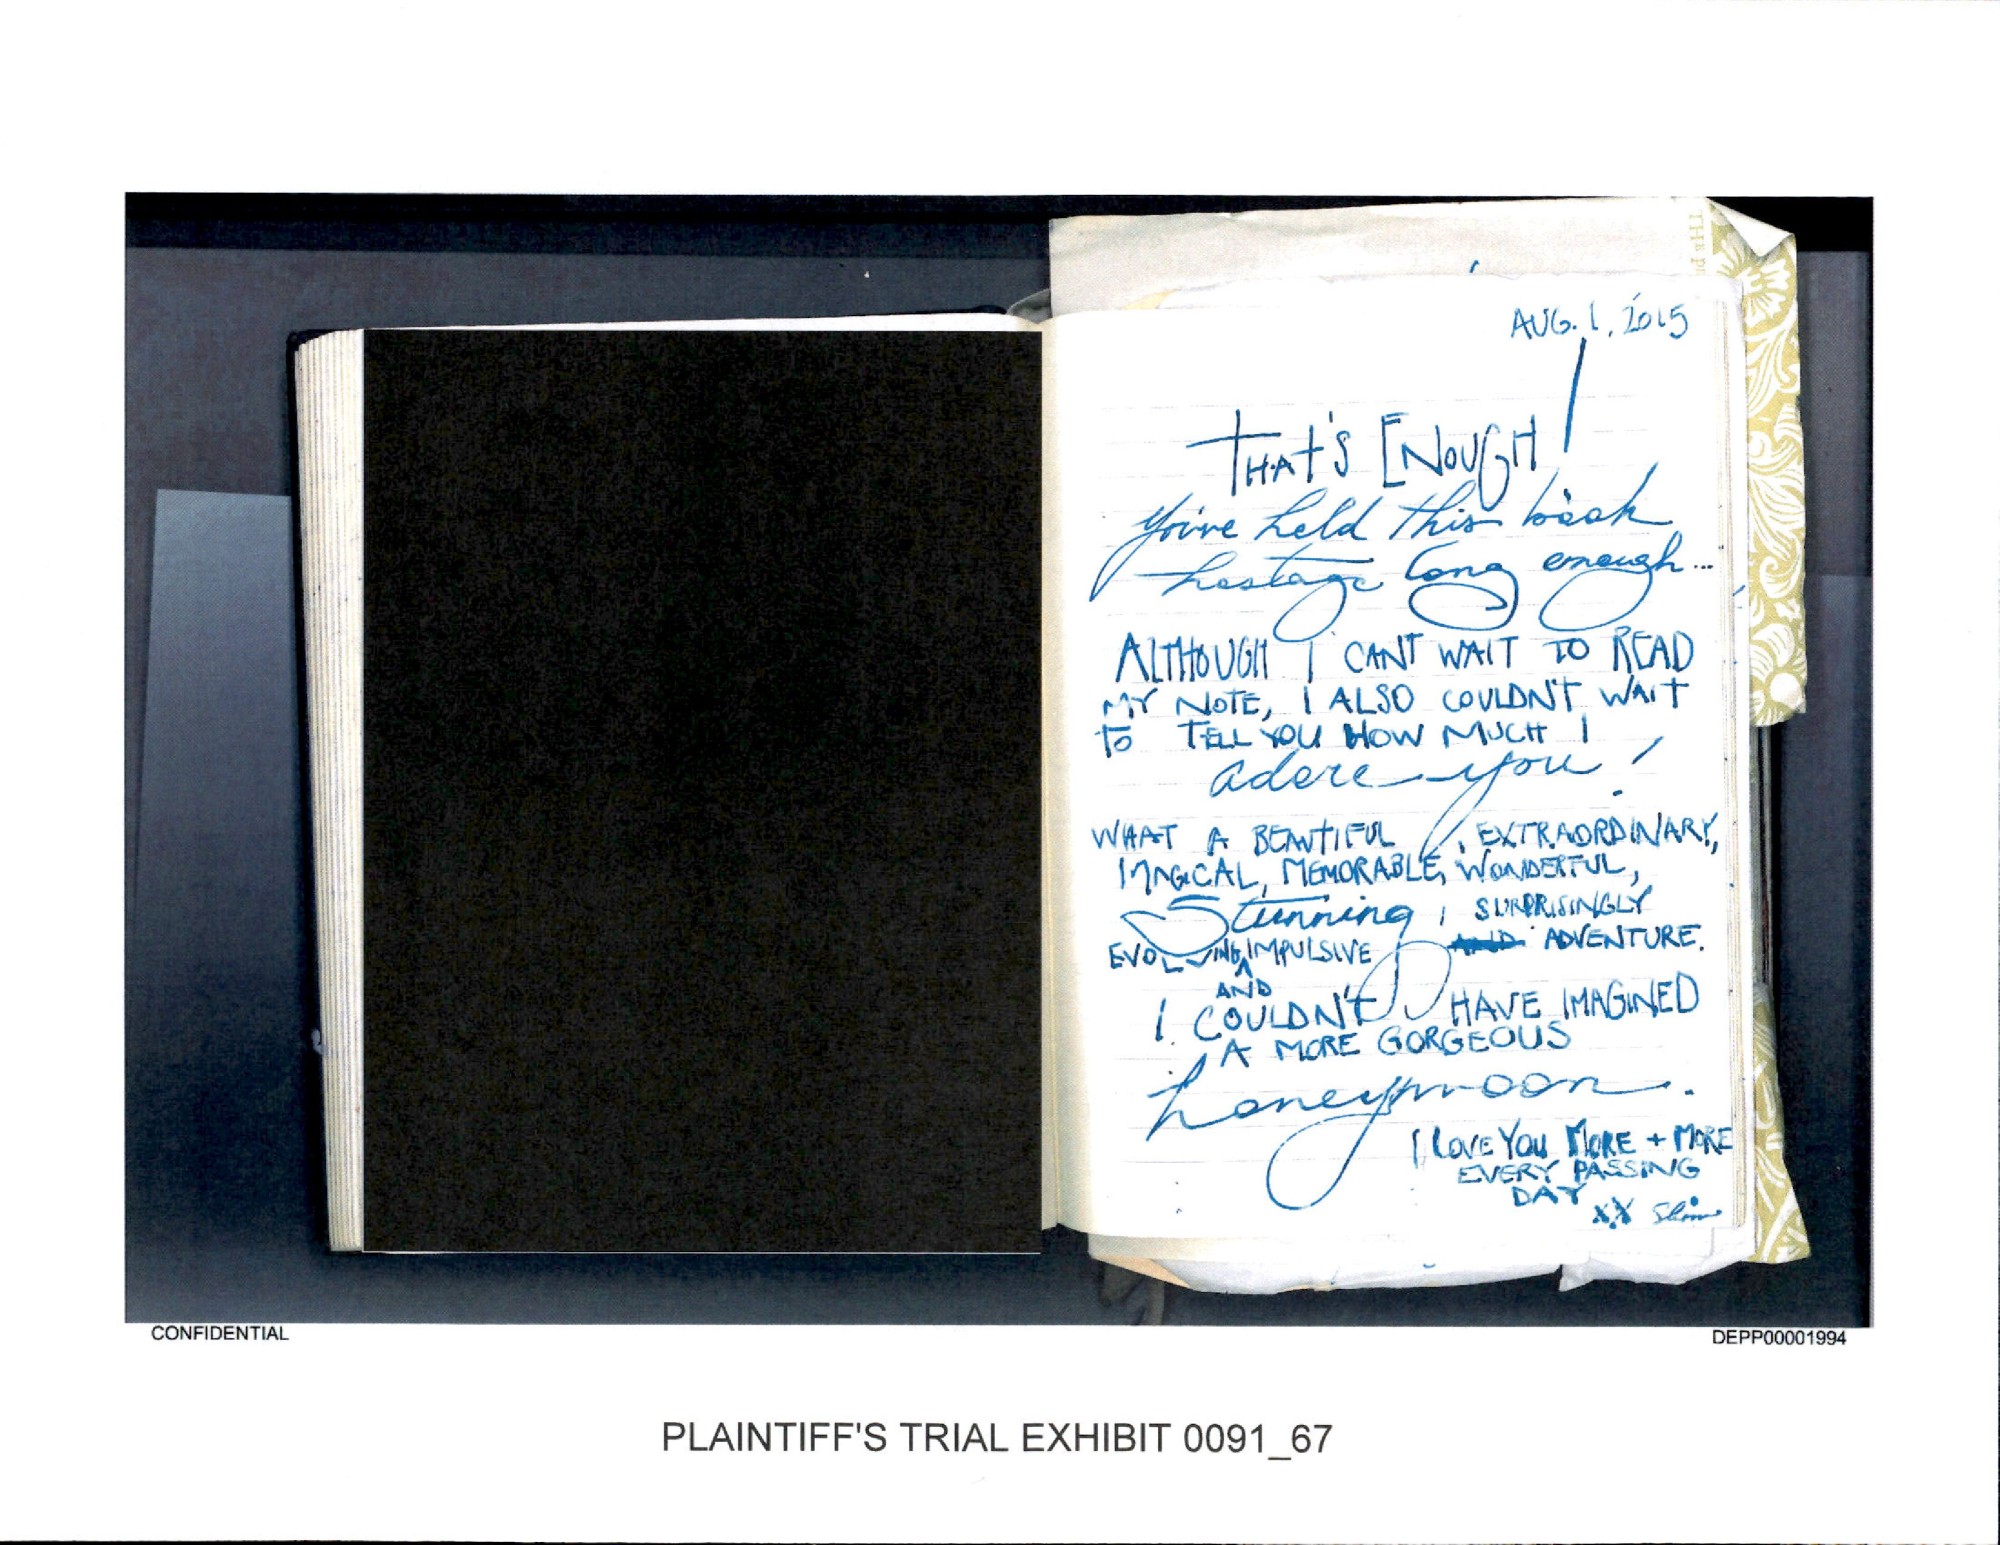 THE
AUG. 1, 2015
THAT'S ENOUGH!
You've held this book
hostage long enough...
ALTHOUGH I CANT WAIT TO READ
MY NOTE, I ALSO COULDN'T WAIT
TO TELL YOU HOW MUCH I
adore you!
WHAT A BEAUTIFUL, EXTRAORDINARY,
MAGICAL, MEMORABLE, WONDERFUL,
Stunning, SURPRISINGLY
EVOLVING, IMPULSIVE AND ADVENTURE.
AND
I COULDN'T HAVE IMAGINED
A MORE GORGEOUS
honeymoon.
I LOVE YOU MORE + MORE
EVERY PASSING
DAY
XX Slim
CONFIDENTIAL
DEPP00001994
PLAINTIFF'S TRIAL EXHIBIT 0091_67